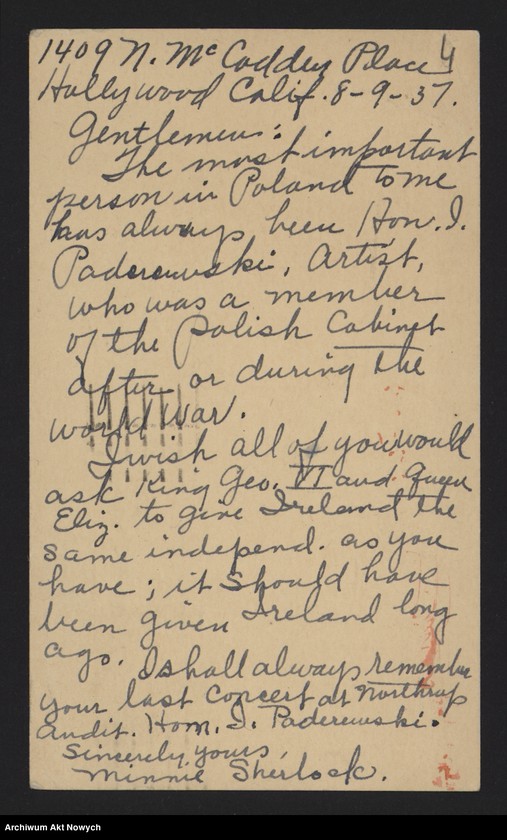 4
1409 N. McCadden Place
Hollywood Calif. 8-9-37.
Gentlemen:
The most important
person in Poland to me
has always been Hon. I.
Paderewski, Artist,
who was a member
of the Polish Cabinet
after or during the
world war.
I wish all of you would
ask King Geo. VI and Queen
Eliz. to give Ireland the
same independ. as you
have; it should have
been given Ireland long
ago. I shall always remember
your last concert at Northrup
Audit. Hom. I. Paderewski.
Sincerely yours,
Minnie Sherlock.
Archiwum Akt Nowych